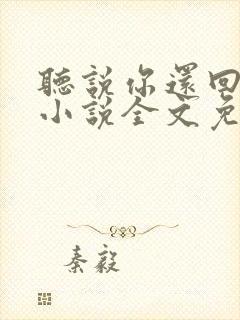 聽說你還回
小說全文免
秦毅